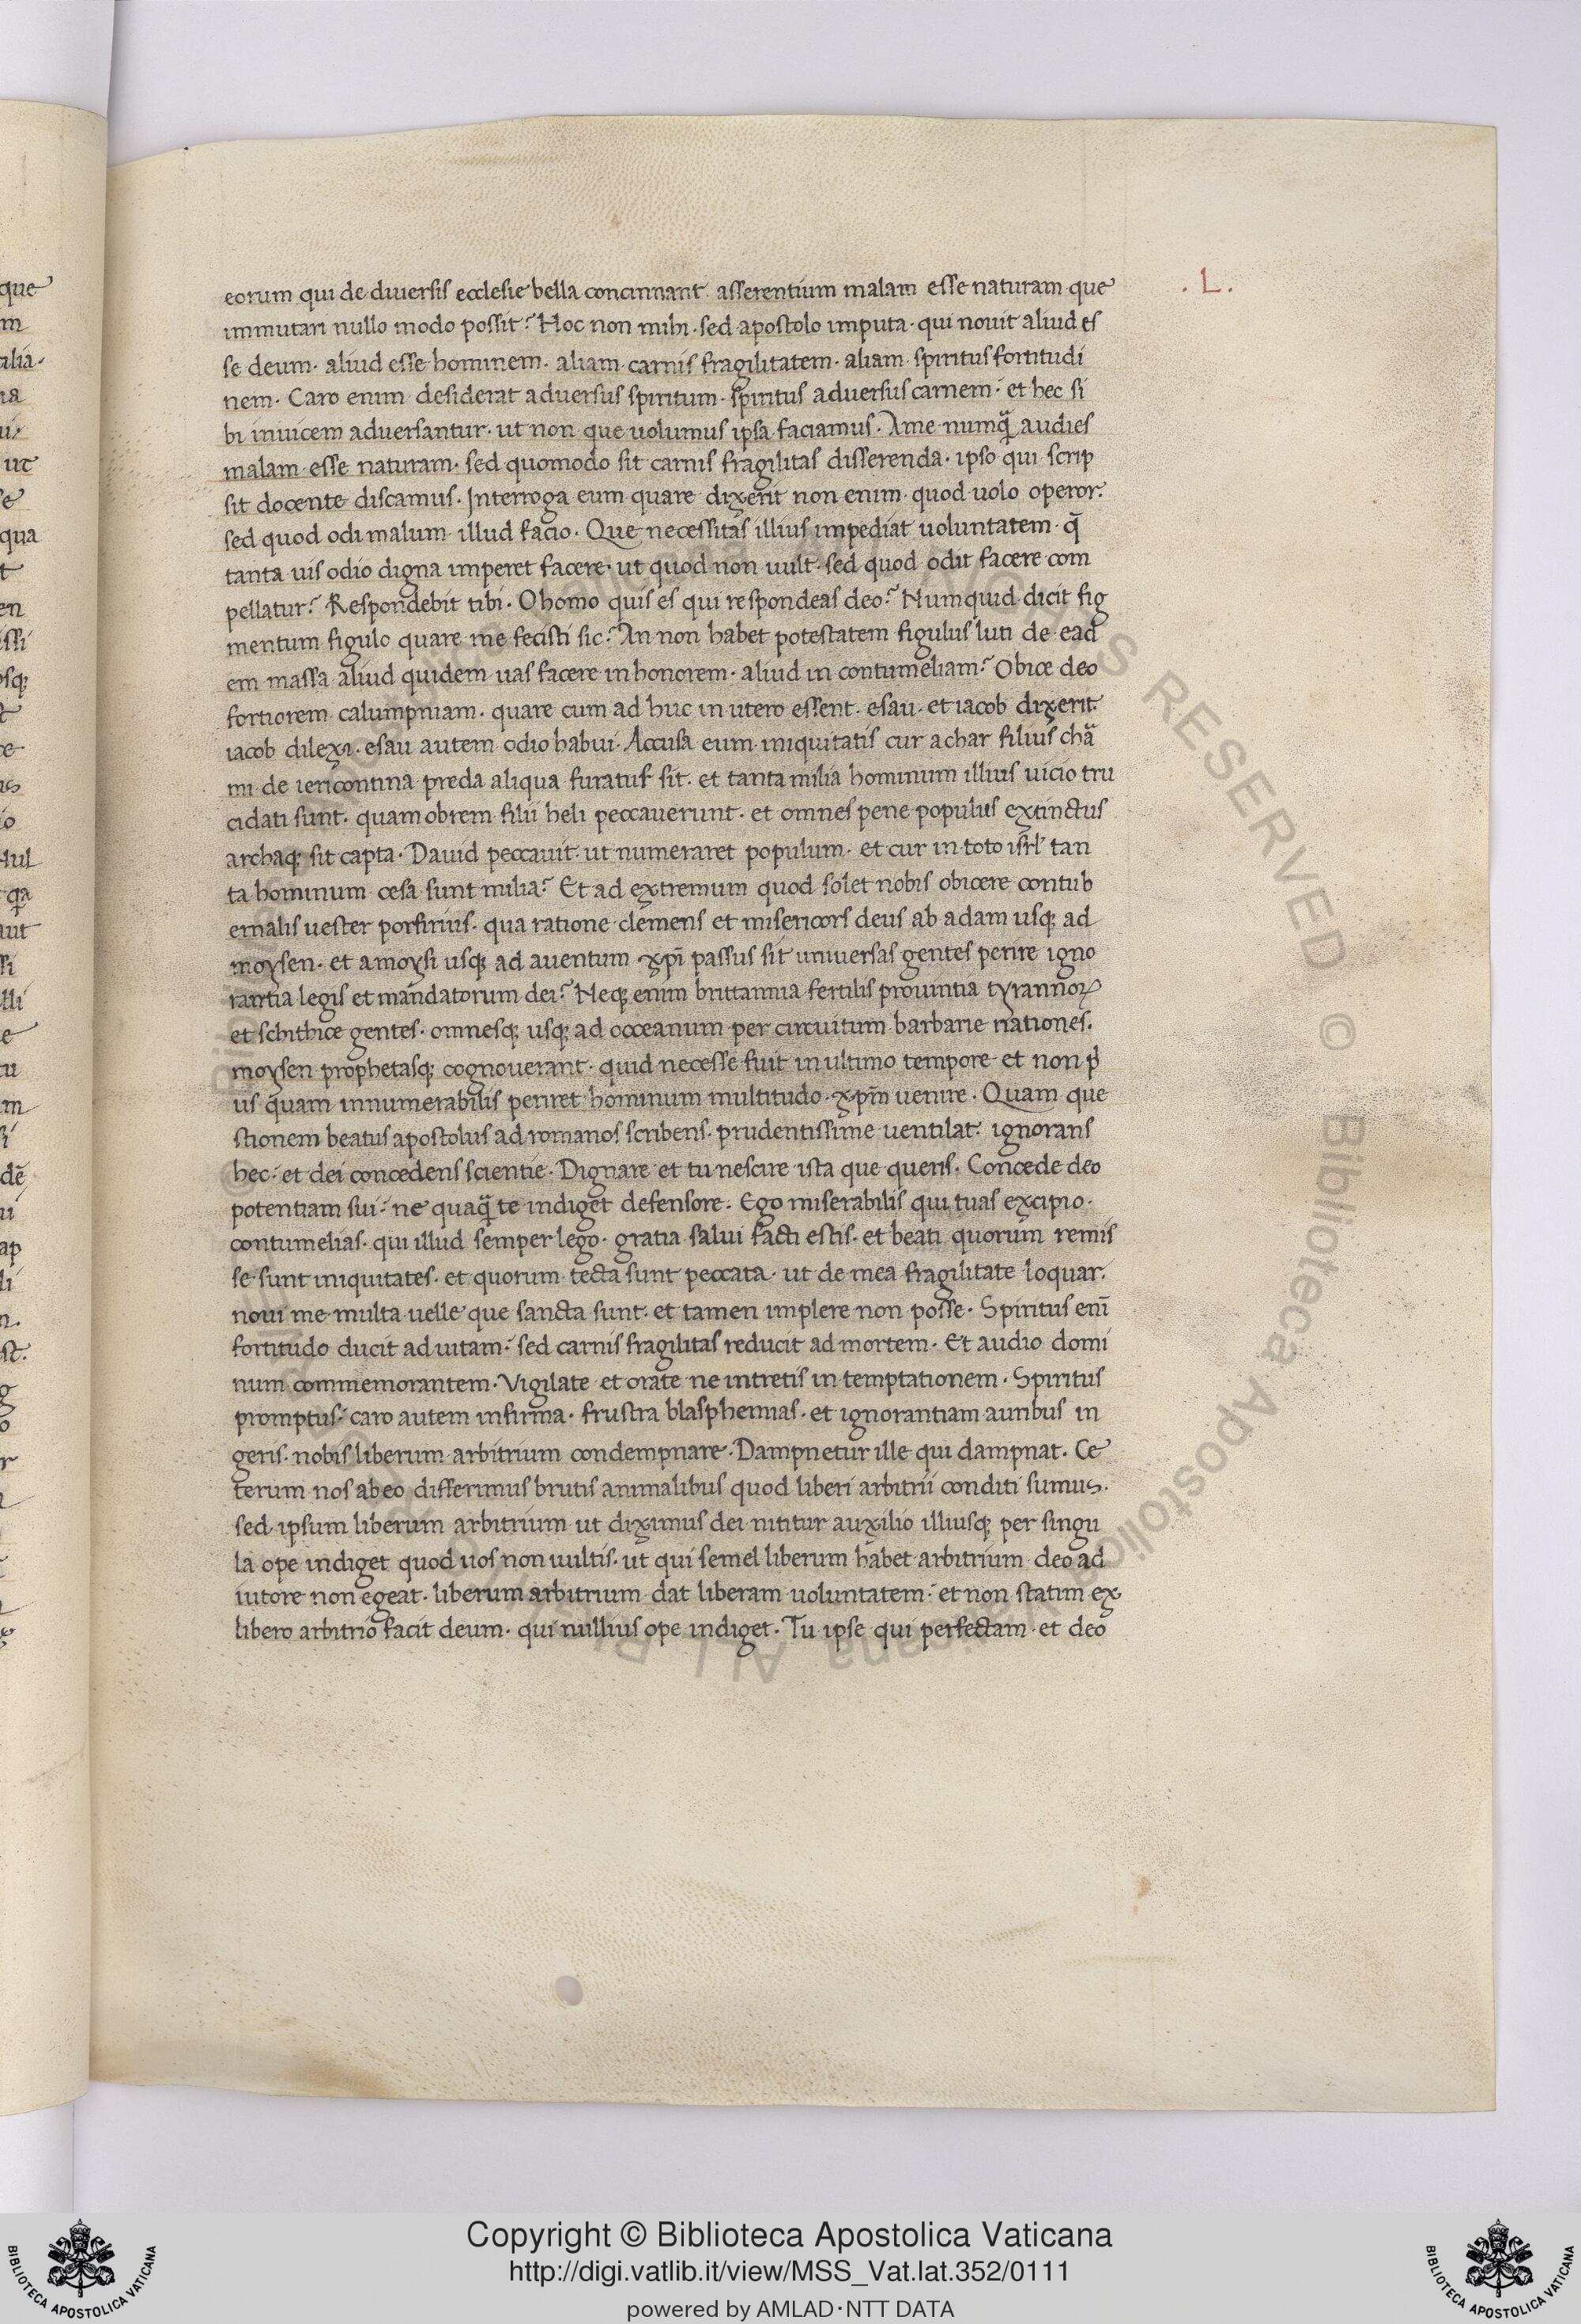 .L.
eorum qui de diuersis ecclesie bella concinnant. asserentium malam esse naturam que
immutari nullo modo possit? Hoc non mihi. sed apostolo imputa. qui nouit aliud es
se deum. aliud esse hominem. aliam carnis fragilitatem. aliam spiritus fortitudi
nem. Caro enim desiderat aduersus spiritum. spiritus aduersus carnem: et hec si
bi inuicem aduersantur. ut non que uolumus ipsa faciamus. Ame numq̃ audies
malam esse naturam. sed quomodo sit carnis fragilitas disserenda. ipso qui scrip
sit docente discamus. Interroga eum quare dixerit non enim quod uolo operor.
sed quod odi malum illud facio. Que necessitas illius impediat uoluntatem. q̄
tanta uis odio digna imperet facere. ut quod non uult. sed quod odit facere com
pellatur? Respondebit tibi. O homo quis es qui respondeas deo? Numquid dicit fig
mentum figulo quare me fecisti sic? An non habet potestatem figulus luti de ead
em massa aliud quidem uas facere in honorem. aliud in contumeliam? Obice deo
fortiorem calumpniam. quare cum ad huc in utero essent. esau. et iacob dixerit.
iacob dilexi. esau autem odio habui. Accusa eum iniquitatis cur achar filius chā
mi de iericontina preda aliqua furatus sit. et tanta milia hominum illius uicio tru
cidati sunt. quam obrem filii heli peccauerunt. et omnes pene populus extinctus
archaq; sit capta. Dauid peccauit. ut numeraret populum. et cur in toto isrl̄ tan
ta hominum cesa sunt milia? Et ad extremum quod solet nobis obicere contub
ernalis uester porfirius. qua ratione clemens et misericors deus ab adam usq; ad
moysen. et a moysi usq; ad auentum xp̄i passus sit uniuersas gentes perire igno
rantia legis et mandatorum dei? Neq; enim brittannia fertilis prouintia tyrannoꝝ
et schithice gentes. omnesq; usq; ad occeanum per circuitum barbarie nationes.
moysen prophetasq; cognouerant. quid necesse fuit in ultimo tempore et non p̓
us quam innumerabilis periret hominum multitudo. xp̄m uenire. Quam que
stionem beatus apostolus ad romanos scribens. prudentissime uentilat. ignorans
hec. et dei concedens scientie. Dignare et tu nescire ista que queris. Concede deo
potentiam sui. ne quaq̃ te indiget defensore. Ego miserabilis qui tuas excipio.
contumelias. qui illud semper lego. gratia salui facti estis. et beati quorum remis
se sunt iniquitates. et quorum tecta sunt peccata. ut de mea fragilitate loquar.
noui me multa uelle que sancta sunt. et tamen implere non posse. Spiritus enī
fortitudo ducit ad uitam: sed carnis fragilitas reducit ad mortem. Et audio domi
num commemorantem. Vigilate et orate ne intretis in temptationem. Spiritus
promptus: caro autem infirma. frustra blasphemias. et ignorantiam auribus in
geris. nobis liberum arbitrium condempnare. Dampnetur ille qui dampnat. Ce
terum nos ab eo differimus brutis animalibus quod liberi arbitrii conditi sumus.
sed ipsum liberum arbitrium ut diximus dei nititur auxilio illiusq; per singu
la ope indiget quod uos non uultis. ut qui semel liberum habet arbitrium deo ad
iutore non egeat. liberum arbitrium dat liberam uoluntatem: et non statim ex
libero arbitrio facit deum. qui nullius ope indiget. Tu ipse qui perfectam et deo
Copyright © Biblioteca Apostolica Vaticana
http://digi.vatlib.it/view/MSS_Vat.lat.352/0111
powered by AMLAD·NTT DATA
BIBLIOTECA APOSTOLICA VATICANA
BIBLIOTECA APOSTOLICA VATICANA